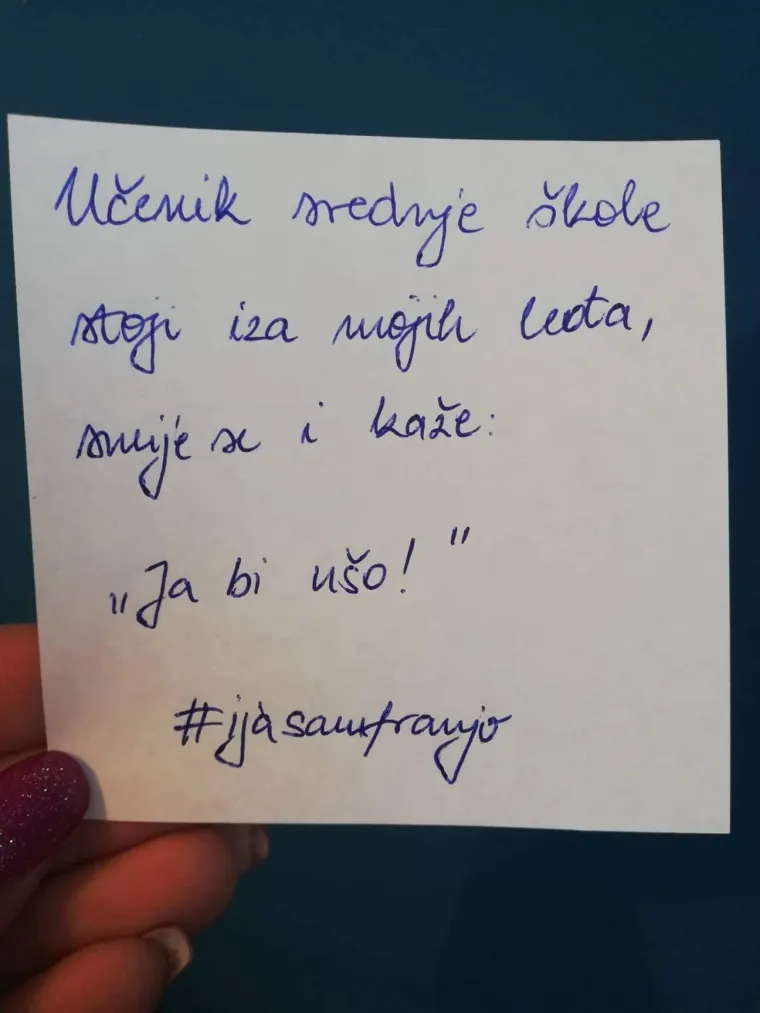 Učenik srednje škole
stoji iza mojih leđa,
smije se i kaže:
„Ja bi ušo!"
#ijasamfranjo